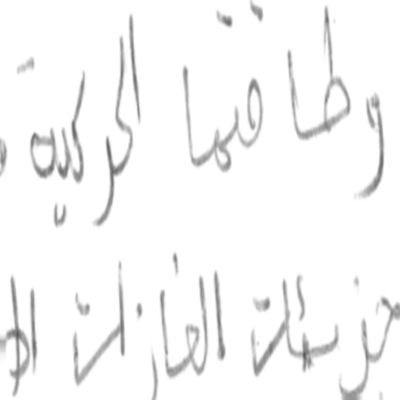 وطاقتها الحركية
جزيئات الغازات